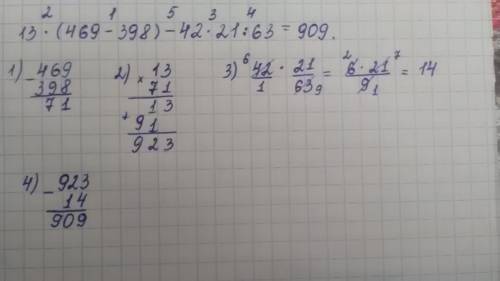 2 1 5 3 4
13 · (469 - 398) - 42 · 21 : 63 = 909.
1) - 469
398
71
2) × 13
71
13
+ 91
923
3) 6 42/1 · 21/63 9 = 2 6 · 21 7 / 9 1 = 14
4) - 923
14
909